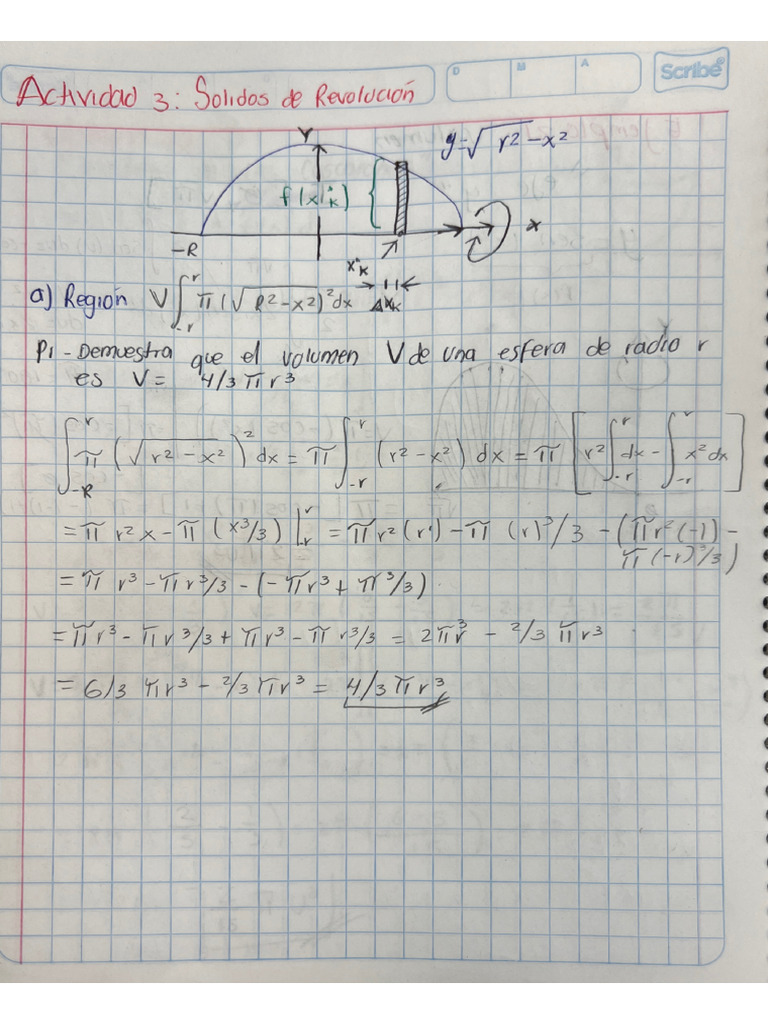 D M A Scribe
Actividad 3: Solidos de Revolución
Y y=√r²-x²
f(x*k)
-R x
x*k
a) Región V∫_{-r}^{r} π(√R²-x²)²dx Δxk
P1 - Demuestra que el volumen V de una esfera de radio r
es V= 4/3πr³
∫_{-R}^{r} π(√r²-x²)²dx = π∫_{-r}^{r} (r²-x²)dx = π[r²∫_{-r}^{r}dx - ∫_{-r}^{r}x²dx]
=π r²x-π(x³/3)|_{r}^{r} = πr²(r)-π (r)³/3 - (πr²(-1)-
π(-r)³/3)
=π r³-πr³/3-(-πr³+π³/3)
=πr³-πr³/3+πr³-πr³/3 = 2πr³ - 2/3 πr³
= 6/3 πr³-2/3πr³ = 4/3πr³